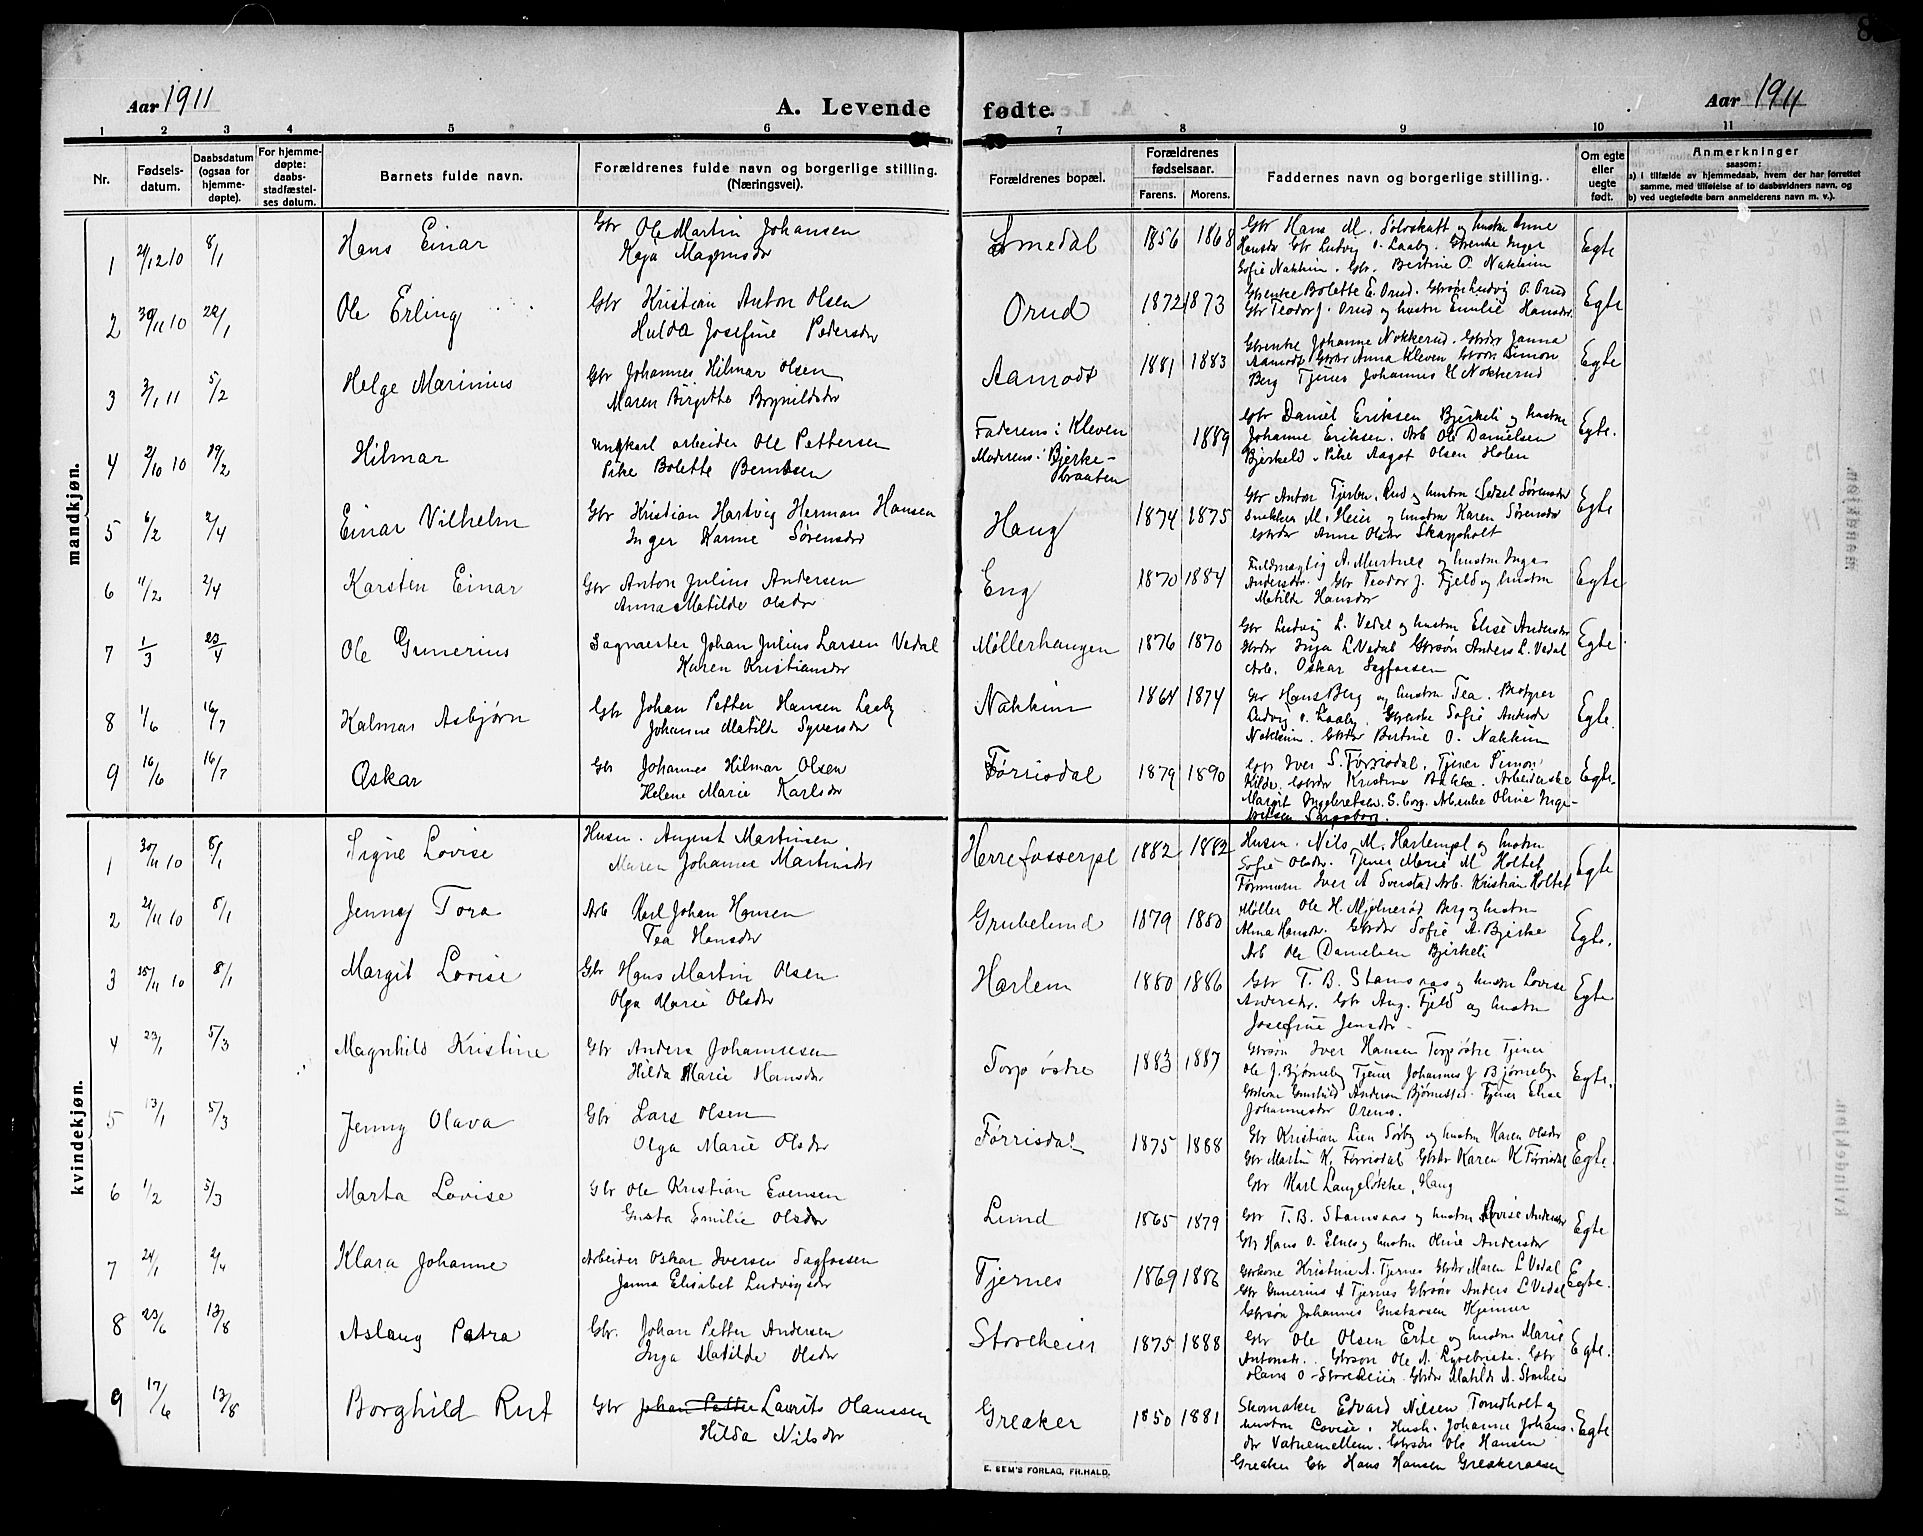 8
Aar 1911
A. Levende fødte.
Aar 1911
1 2 3 4 5 6 7 8 9 10 11
Nr.
Fødsels-
datum.
Daabsdatum
(ogsaa for
hjemme-
døpte).
For hjemme-
døpte:
daabs-
stadfæstel-
ses datum.
Barnets fulde navn.
Forældrenes fulde navn og borgerlige stilling.
(Næringsvei).
Forældrenes bopæl.
Forældrenes
fødselsaar.
Farens. Morens.
Faddernes navn og borgerlige stilling.
Om egte
eller
uegte
født.
Anmerkninger
saasom:
a) i tilfælde av hjemmedaab, hvem der har forrettet
samme, med tilføielse af to daabsvidners navn, og
b) ved uegtefødte barn anmelderens navn m. v.).
mandkjøn.
1 21/12 10 8/1 Hans Einar
Gbr Ole Martin Johansen
Kaja Magnusdr
Smedal 1856 1868
Gbr Hans M. Solvskatt og hustru Anne
Hansdr Gbr Ludvig O. Laaby. Gbrenke Inger
Sofie Nakkim. Gbr. Bertine O. Nakkim
Egte
2 30/11 10 22/1 Ole Erling
Gbr Kristian Anton Olsen
Hulda Josefine Pedersdr
Orud 1872 1873
Gbrenke Bolette E. Orud. Gbrsøn Ludvig O. Orud
Gbr Teodor J. Orud og hustru Emilie Hansdr.
Egte
3 3/1 11 5/2 Helge Marinius
Gbr Johannes Hilmar Olsen
Maren Birgitte Brynildsdr
Aamodt 1881 1883
Gbrenke Johanne Nokkerud. Gbrdr Janna
Aamodt Gbrdr Anna Kleven Gbrsøn Simon
Berg Tjener Johannes H Nokkerud
Egte
4 2/10 10 19/2 Hilmar
Ungkarl arbeider Ole Pettersen
Pike Bolette Berntsen
Faderens: Kleven
Moderens: Bjerke-
braaten
1889
Gbr Daniel Eriksen Bjerkeli og hustru
Johanne Eriksen. Arb Ole Danielsen
Bjerkeld. Pike Aagot Olsen Holen
Egte.
5 6/2 2/4 Einar Vilhelm
Gbr Kristian Hartvig Herman Hansen
Inger Hanne Sørensdr
Haug 1874 1875
Gbr Anton Tjerbu, Rud og hustru Sedzel Sørensdr
Snekker M. Heier og hustru Karen Sørensdr
Gbrdr Anne Olsdr Skarpholt
Egte
6 11/2 2/4 Karsten Einar
Gbr Anton Julius Andersen
Anna Matilde Olsdr
Eng 1870 1884
Fuldmægtig A. Murtnes og hustru Inga
Andersdr. Gbr Teodor J. Fjeld og hustru
Matilde Hansdr
Egte
7 1/3 23/4 Ole Gunerius
Sagmester Johan Julius Larsen Vedal
Karen Kristiansdr
Møllerhaugen 1876 1870
Gbr Ludvig L. Vedal og hustru Elise Andersdr
Gbrdr Inga L Vedal Gbrsøn Anders L. Vedal
Arb. Oskar Sagfossen
Egte
8 1/6 16/7 Kalmar Asbjørn
Gbr Johan Petter Hansen Laaby
Johanne Matilde Syversdr
Nakkim 1864 1874
Gbr Hans Berg og hustru Tea. Bestyrer
Ludvig O. Laaby. Gbrenke Sofie Andersdr
Nakkim. Gbrdr Bertine O. Nakkim
Egte.
9 16/6 16/7 Oskar
Gbr Johannes Hilmar Olsen
Helene Marie Karlsdr
Førrisdal 1879 1890
Gbr Iver S. Førrisdal, Tjener Simon
Kilde. Gbrdr Kristine Bakke. Arbeiderske
Margit Ingebretsen S. borg. Arb enke Oline Inge-
Sarpsborg.
Egte.
kvindekjøn.
1 30/11 10 8/1 Signe Lovise
Husm. August Martinsen
Maren Johanne Martinsdr
Herrefosserpl 1882 1882
Husm. Nils M. Harlempl og hustru
Sofie Olsdr. Tjener Marie M Holtet
Formann Iver A Sverstad Arb. Kristian Holtet
Egte
2 21/11 10 8/1 Jenny Tora
Arb Karl Johan Hansen
Tea Hansdr
Grubelund 1879 1880
Møller Ole H. Mjølnerød Berg og hustru
Alma Hansdr. Gbrdr Sofie A. Bjerke
Arb Ole Danielsen Bjerkeli
Egte.
3 15/11 10 8/1 Margit Lovise
Gbr Hans Martin Olsen
Olga Marie Olsdr
Harlem 1880 1886
Gbr T. B. Stamsaas og hustru Lovise
Andersdr. Gbr Aug. Fjeld og hustru
Josefine Jensdr.
Egte
4 23/1 5/3 Magnhild Kristine
Gbr Anders Johannesen
Hilda Marie Hansdr
Torp østre 1883 1887
Gbrsøn Iver Hansen Torp østre Tjener
Ole J. Bjørneby Tjener Johannes J Bjørneby
Gbrkone Gunhild Andersen Bjørnstad. Tjener Elise
Johannesdr Orems.
Egte.
5 13/1 5/3 Jenny Olava
Gbr Lars Olsen
Olga Marie Olsdr
Førrisdal 1875 1888
Gbr Kristian Lien Søby og hustru Karen Olsdr
Gbr Martin K. Førrisdal Gbrdr Karen K Førrisdal
Gbr Karl Langeløkke, Haug
Egte.
6 1/2 5/3 Marta Lovise
Gbr Ole Kristian Evensen
Gusta Emilie Olsdr
Lund 1865 1879
Gbr T. B. Stamsaas og hustru Lovise Andersdr
Gbr Hans O. Elnes og hustru Oline Andersdr
Egte
7 24/1 2/4 Klara Johanne
Arbeider Oskar Iversen Sagfossen
Janna Elisabet Ludvigsdr
Tjernes 1869 1886
Gbrkone Kristine A. Tjernes Gbrdr Maren L Vedal
Gbr Gunerius A Tjernes Gbrsøn Anders L Vedal
Gbrsøn Johannes Gustavsen Hjemmer
Egte.
8 23/6 13/8 Aslaug Petra
Gbr. Johan Petter Andersen
Inga Matilde Olsdr
Storeheier 1875 1888
Gbr Ole Olsen Erte og hustru Marie
Antonsdr. Gbrsøn Ole A. Lyrebriste. Gbr
Hans O. Storeheier Gbrdr Matilde A. Storheier
Egte.
9 17/6 13/8 Borghild Rut
Gbr Johan Petter Laurits Hanssen
Hilda Nilsdr
Greaker 1850 1881
Skomaker Edvard Nilsen Tomdholt og
hustru Lovise. Hush. Johanne Johans-
dr Vatnemellem. Gbrsøn Ole Hansen
Greaker Gbr Hans Hansen Greakeraasen
Egte
E. SEM'S FORLAG, FR.HALD.